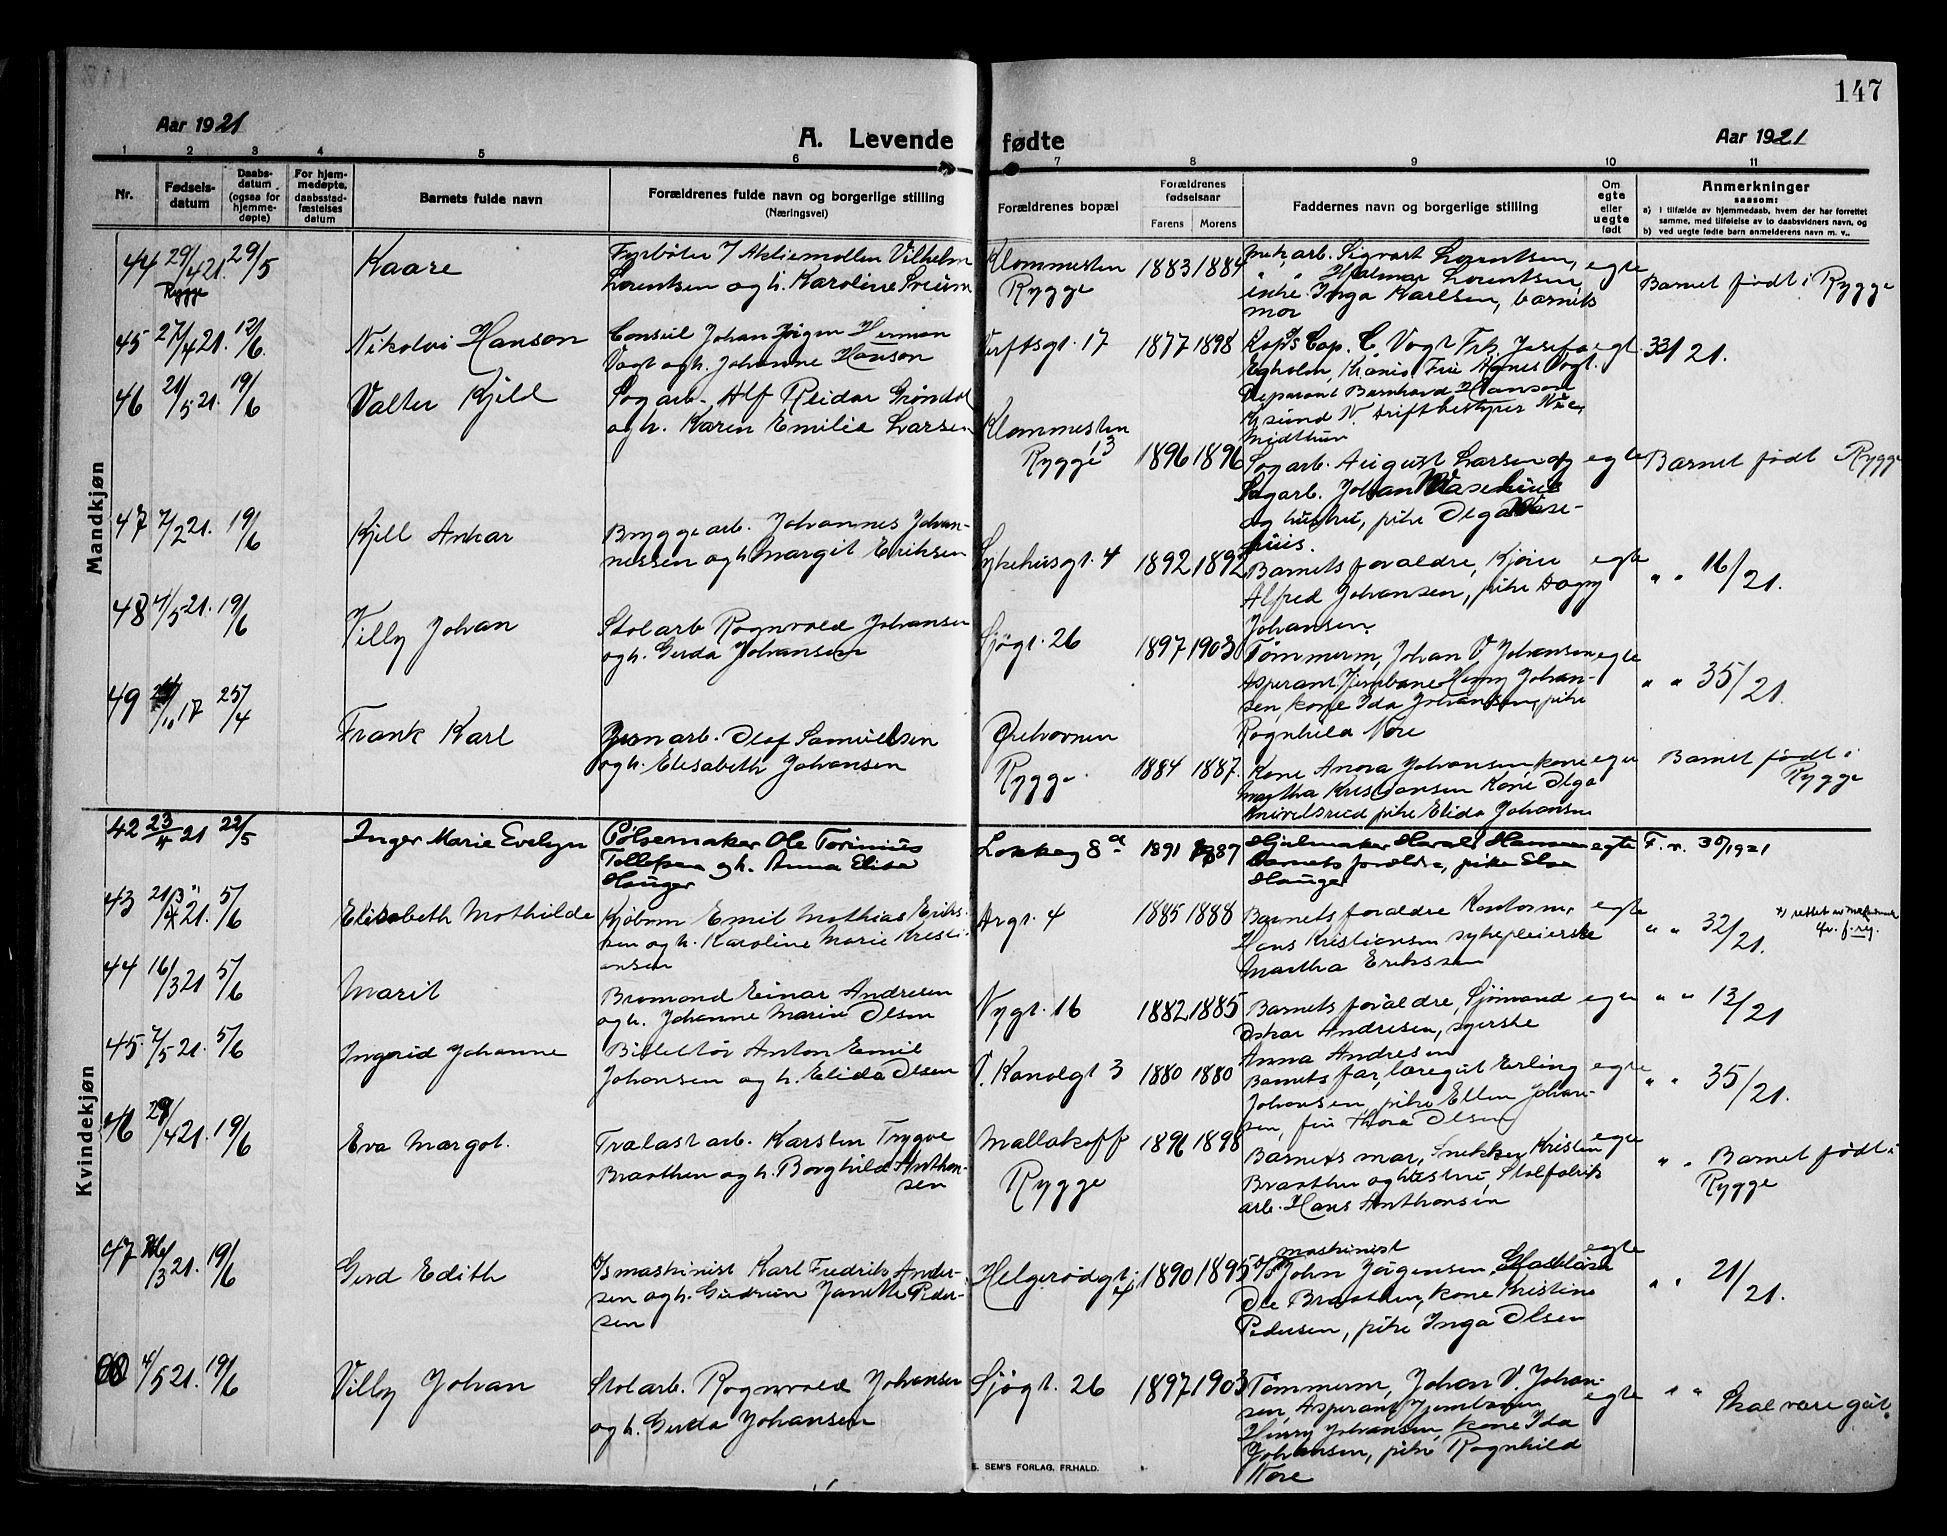 147
Aar 1921
A. Levende fødte
Aar 1921
1 2 3 4 5 6 7 8 9 10 11
Nr.
Fødsels-
datum
Daabs-
datum
(ogsaa for
hjemme-
døpte)
For hjem-
medøpte,
daabsstad-
fæstelses
datum
Barnets fulde navn
Forældrenes fulde navn og borgerlige stilling
(Næringsvei)
Forældrenes bopæl
Forældrenes
fødselsaar
Farens Morens
Faddernes navn og borgerlige stilling
Om
egte
eller
uegte
født
Anmerkninger
saasom:
a) I tilfælde av hjemmedaab, hvem der har forrettet
samme, med tilføielse av to daabsvidners navn, og
b) ved uegte fødte barn anmelderens navn m. v.
Mandkjøn
44 29/4 21. 29/5
Rygge
Kaare
Fyrbøter / Aktiemøllen Vilhelm
Lorentsen og h. Karoline
Klommesten
Rygge
1883 1884
arb. Sigvart Lorentsen,
" " Hjalmar Lorentsen,
enke Inga Karlsen, barnets
mor
egte
Barnet født i Rygge
45 27/4 21. 12/6
Nikolai Hanson
Consul Johan Jørgen Herman
Vogt og h. Johanne Hanson
Verftsgt. 17
1877 1898
Cap. C Vogt Frk. Josefa
Egholm, Fru Agnes Vogt.
Bernhard Hanson
N. Driftbestyrer
Midthun
egt.
33/21.
46 21/5 21. 19/6
Valter Kjell
Sagarb. Alf Reidar Grøndal
og h. Karen Emilie Larsen
Klommesten
Rygge 13
1896 1896
Sagarb. August Larsen og
Sagarb. Johan
og hustru, pike Olga
huus.
egte
Barnet født Rygge
47 7/2 21. 19/6
Kjell Ankar
Bryggearb. Johannes Johan-
nessen og h. Margit Eriksen
Sykehusgt. 4
1892 1892
Barnets forældre, Kjøre
Alfred Johansen, pike Dagny
Johansen.
egte
" " 16/21.
48 4/5 21. 19/6
Villy Johan
Stolarb Ragnvald Johansen
og h. Gerda Johansen
Sjøgt. 26
1897 1903
Tømmerm, Johan V. Johansen
Asperant. Jernbane Henry Johan-
sen, kone Ida Johansen, pike
Ragnhild Nore
egte
" " 35/21.
49 17 25/4
Frank Karl
Jernarb. Olaf Samuelsen
og h. Elisabeth Johansen
Ørehavnen
Rygge.
1884 1887.
Kone Anora Johansen kone
Martha Kristiansen Kone Olga
Knivelsrud pike Elida Johansen
egte
Barnet født i
Rygge
Kvindekjøn
42 23/4 21 22/5
Inger Marie Evelyn
Pølsemaker Ole Torinius
Tollefsen og h. Anna Elise
Hauger
Løkkeg 8 a
1891 1887
Hjulmaker Harald Hansen
barnets forældre, pike Elsa
Hauger
egte
F. r. 35/1921
43 21. 5/6
Elisabeth Mathilde
Kjøbm Emil Mathias Eriks-
sen og h. Karoline Marie Kristi-
ansen
Argt. 4
1885 1888
Barnets forældre Kontorm,
Hans Kristiansen sykepleierske
Martha Erikssen
egte
" " 32/21.
44 16/3 21 5/6
Marit
Bromand Einar Andresen
og h. Johanne Marie Olsen
Nygt. 16
1882 1885
Barnets forældre, Sjømand
Oskar Andresen, syerske
Anna Andresen
egte
" " 13/21
45. 7/5 21. 5/6
Ingerid Johanne
Billettør Anton Emil
Johansen og h. Elida Olsen
V. Kanalgt 3
1880 1880
Barnets far, læregut Erling
Johansen, pike Ellen Johan-
sen, fru Thora Olsen
egte
" " 35/21.
46 29/4 21. 19/6
Eva Margot.
Trælastarb. Karsten Trygve
Braathen og h. Borghild Anthon-
sen
Mallakoff
Rygge
1896 1898
Barnets mor, Snekker Kristen
Braathen og hustru, Stolfabrik
arb. Hans Anthonsen
egte
" . Barnet født i
Rygge
47 /3 21. 19/6
Gerd Edith
D/S maskinist Karl Fredrik Ander-
sen og h. Gudrun Janette Peder-
sen
Helgerødgt. 4
1890 1895
maskinist
D/S John Jørgensen, Glasblåser
Ole Braathen, kone Kristine
Pedersen, pike Inga Olsen
egte
" " 21/21.
4/5 21. 19/6
Villy Johan
Stolarb. Ragnvald Johansen
og h. Gerda Johansen
Sjøgt. 26
1897 1903
Tømmerm, Johan V. Johan-
sen, Asperant Jernbanen
Henry Johansen, kone Ida
Johansen, pike Ragnhild
Nore
egte
" " Skal være gut.
E. SEM'S FORLAG, FR.HALD.